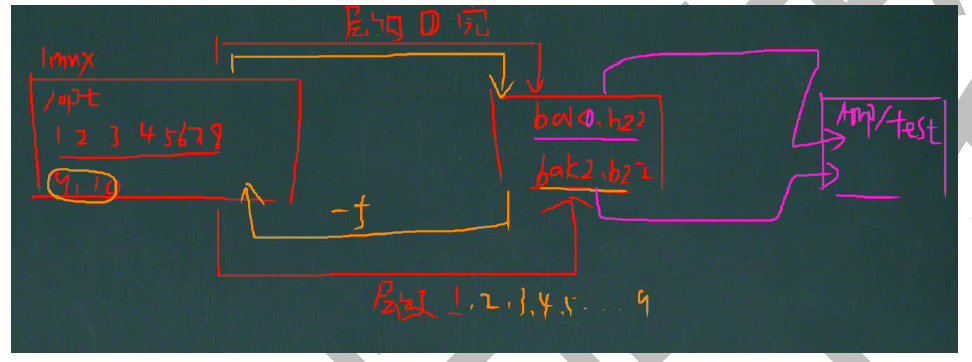 层级 0 完
linux
/opt
1 2 3 4 5 6 7 8
9, 10
bak0.bz2
bak2.bz2
tmp/test
-f
层级 1.2.3.4.5....9